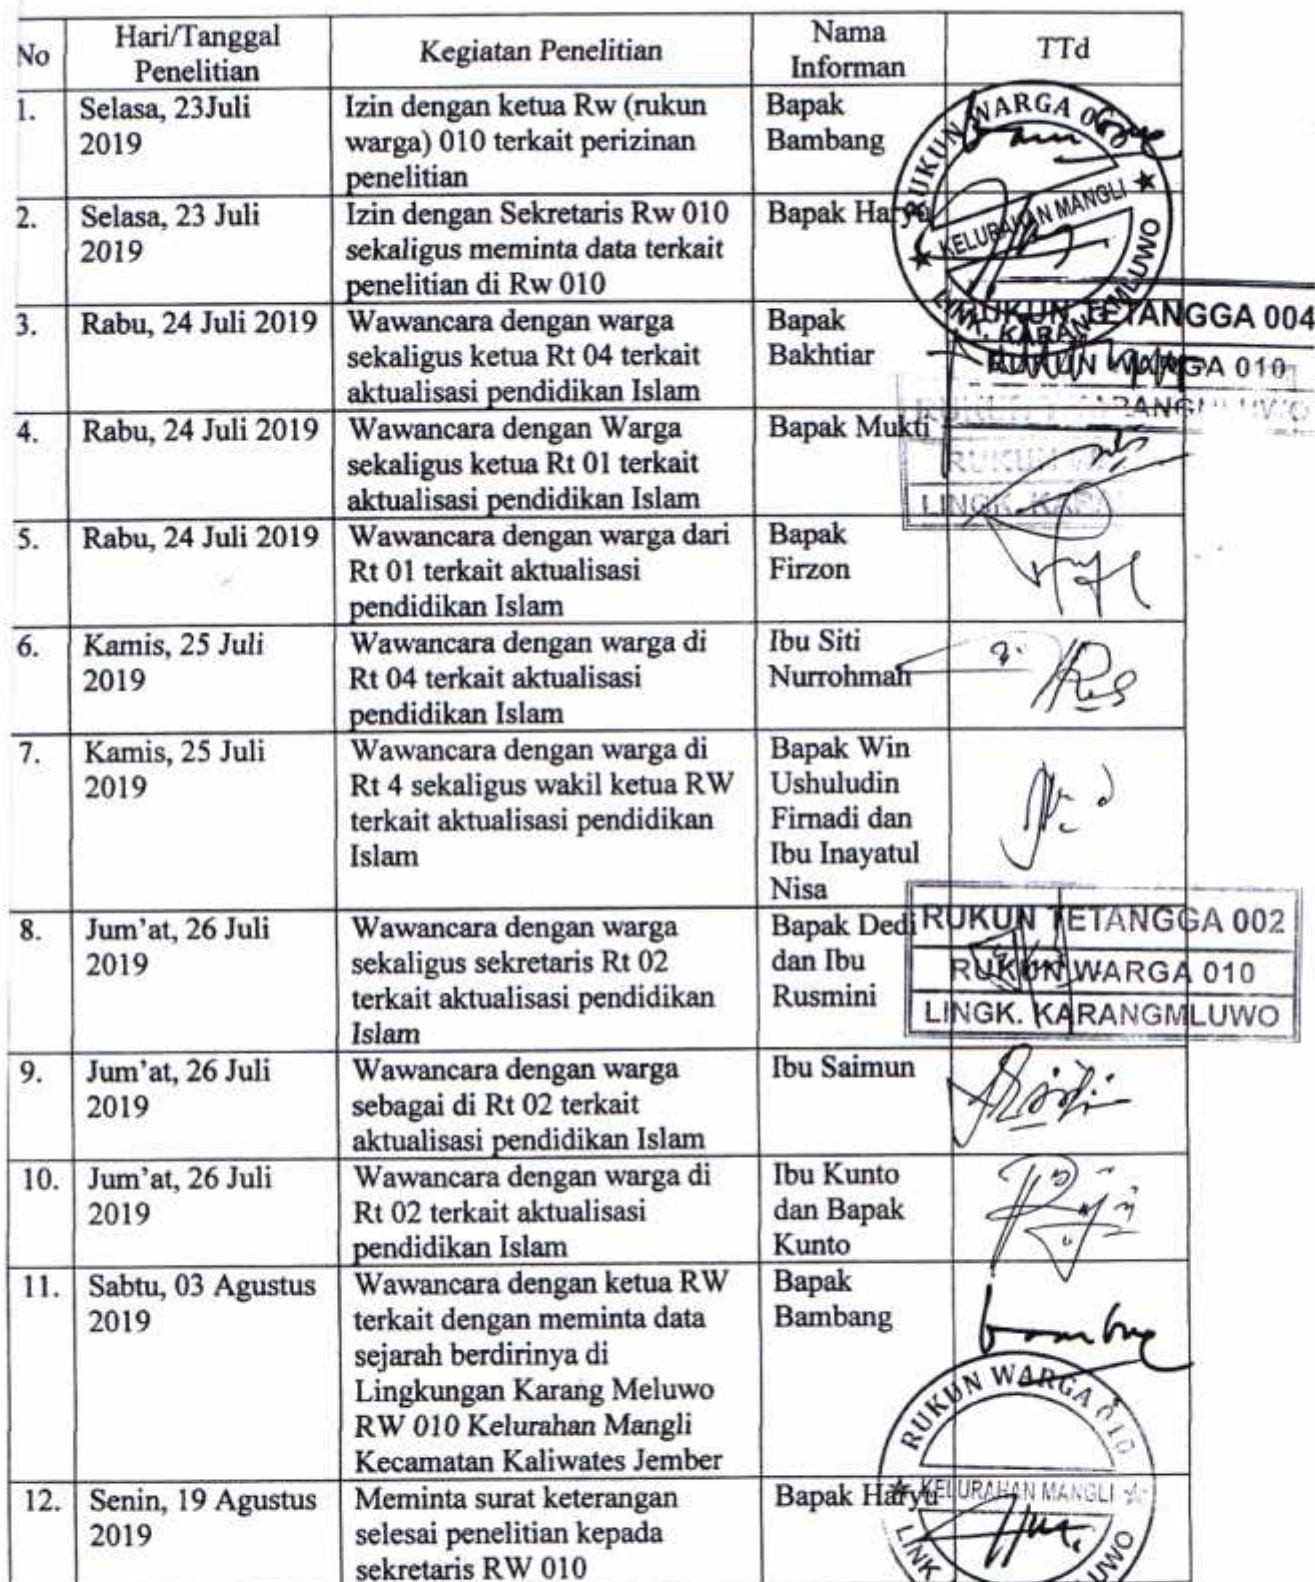 No
Hari/Tanggal
Penelitian
Kegiatan Penelitian
Nama
Informan
TTd
1.
Selasa, 23Juli
2019
Izin dengan ketua Rw (rukun
warga) 010 terkait perizinan
penelitian
Bapak
Bambang
RUKUN WARGA 010
KELURAHAN MANGLI
LINK. KARANGMLUWO
2.
Selasa, 23 Juli
2019
Izin dengan Sekretaris Rw 010
sekaligus meminta data terkait
penelitian di Rw 010
Bapak Haryu
3.
Rabu, 24 Juli 2019
Wawancara dengan warga
sekaligus ketua Rt 04 terkait
aktualisasi pendidikan Islam
Bapak
Bakhtiar
RUKUN TETANGGA 004
RUKUN WARGA 010
4.
Rabu, 24 Juli 2019
Wawancara dengan Warga
sekaligus ketua Rt 01 terkait
aktualisasi pendidikan Islam
Bapak Mukti
5.
Rabu, 24 Juli 2019
Wawancara dengan warga dari
Rt 01 terkait aktualisasi
pendidikan Islam
Bapak
Firzon
6.
Kamis, 25 Juli
2019
Wawancara dengan warga di
Rt 04 terkait aktualisasi
pendidikan Islam
Ibu Siti
Nurrohmah
7.
Kamis, 25 Juli
2019
Wawancara dengan warga di
Rt 4 sekaligus wakil ketua RW
terkait aktualisasi pendidikan
Islam
Bapak Win
Ushuludin
Firnadi dan
Ibu Inayatul
Nisa
8.
Jum'at, 26 Juli
2019
Wawancara dengan warga
sekaligus sekretaris Rt 02
terkait aktualisasi pendidikan
Islam
Bapak Dedi
dan Ibu
Rusmini
RUKUN TETANGGA 002
RUKUN WARGA 010
LINGK. KARANGMLUWO
9.
Jum'at, 26 Juli
2019
Wawancara dengan warga
sebagai di Rt 02 terkait
aktualisasi pendidikan Islam
Ibu Saimun
10.
Jum'at, 26 Juli
2019
Wawancara dengan warga di
Rt 02 terkait aktualisasi
pendidikan Islam
Ibu Kunto
dan Bapak
Kunto
11.
Sabtu, 03 Agustus
2019
Wawancara dengan ketua RW
terkait dengan meminta data
sejarah berdirinya di
Lingkungan Karang Meluwo
RW 010 Kelurahan Mangli
Kecamatan Kaliwates Jember
Bapak
Bambang
RUKUN WARGA 010
KELURAHAN MANGLI
12.
Senin, 19 Agustus
2019
Meminta surat keterangan
selesai penelitian kepada
sekretaris RW 010
Bapak Haryu